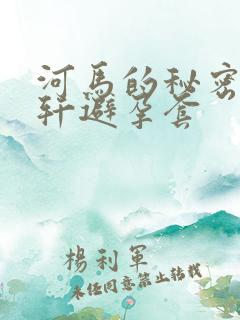 河马的秘密
轩避孕套
楊利軍
未经同意禁止转载